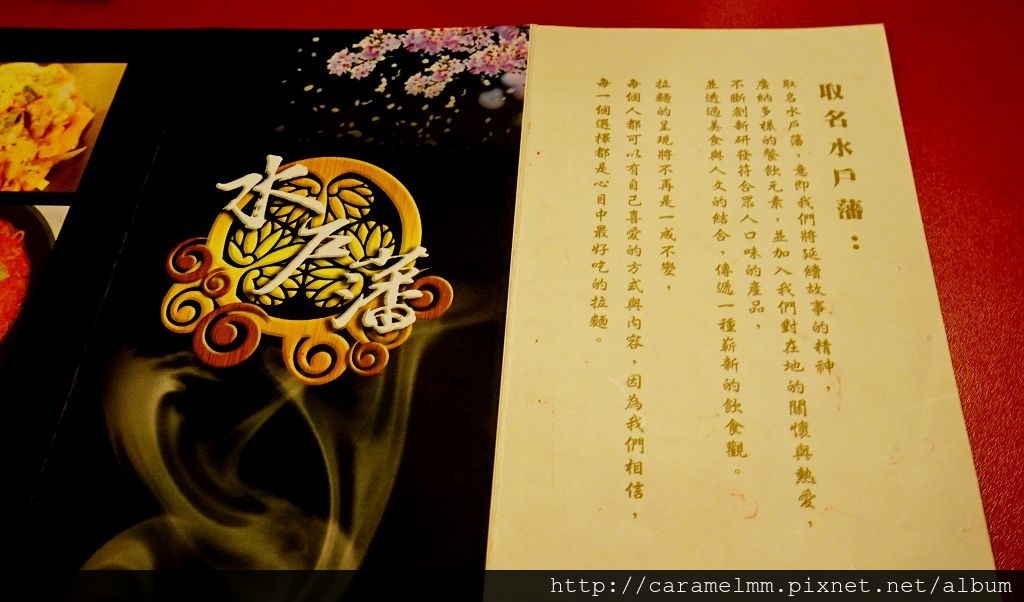 水戶藩
取名水戶藩：
取名水戶藩，意即我們將延續故事的精神，
廣納多樣的餐飲元素，並加入我們對在地的關懷與熱愛，
不斷創新研發符合眾人口味的產品，
並透過美食與人文的結合，傳遞一種嶄新的飲食觀。
拉麵的呈現將不再是一成不變，
每個人都可以有自己喜愛的方式與內容，因為我們相信，
每一個選擇都是心目中最好吃的拉麵。
http://caramelmm.pixnet.net/album